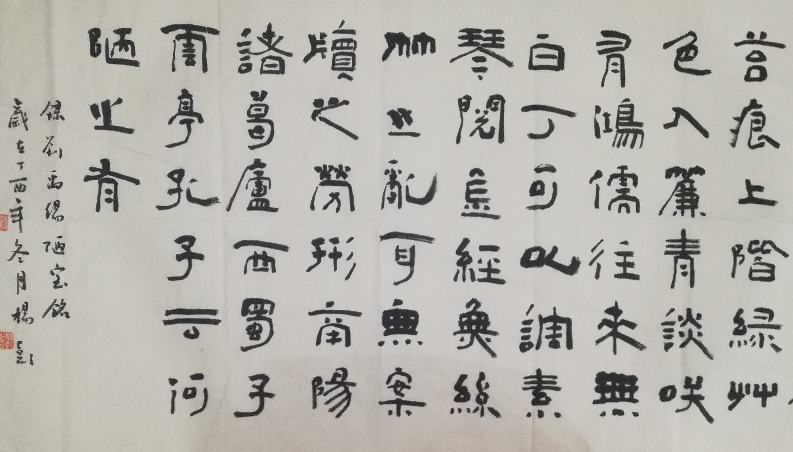 苔痕上階緑艸
色入簾青談咲
有鴻儒往来無
白丁可以調素
琴閲金經無絲
竹之亂耳無案
牘之勞形南陽
諸葛廬西蜀子
雲亭孔子云何
陋之有
録劉禹錫陋室銘
歲在丁酉年冬月楊